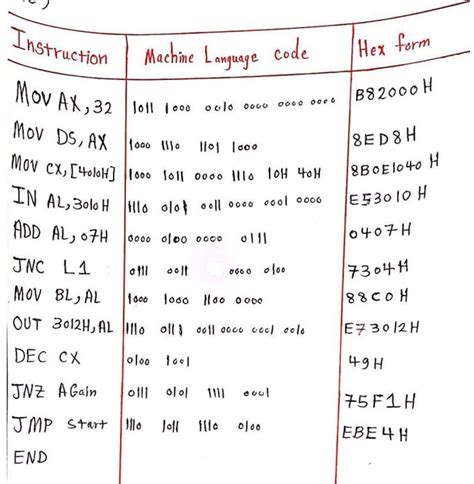 Instruction Machine Language code Hex form
MOV AX,32 1011 1000 0010 0000 0000 0000 B82000H
MOV DS,AX 1000 1110 1101 1000 8ED8H
MOV CX,[4010H] 1000 1011 0000 1110 10H 40H 8B0E1040H
IN AL,3010H 1110 0101 0011 0000 0001 0000 E53010H
ADD AL,07H 0000 0100 0000 0111 0407H
JNC L1 0111 0011 0000 0100 7304H
MOV BL,AL 1000 1000 1100 0000 88C0H
OUT 3012H,AL 1110 0111 0011 0000 0001 0010 E73012H
DEC CX 0100 1001 49H
JNZ AGain 0111 0101 1111 0001 75F1H
JMP Start 1110 1011 1110 0100 EBE4H
END